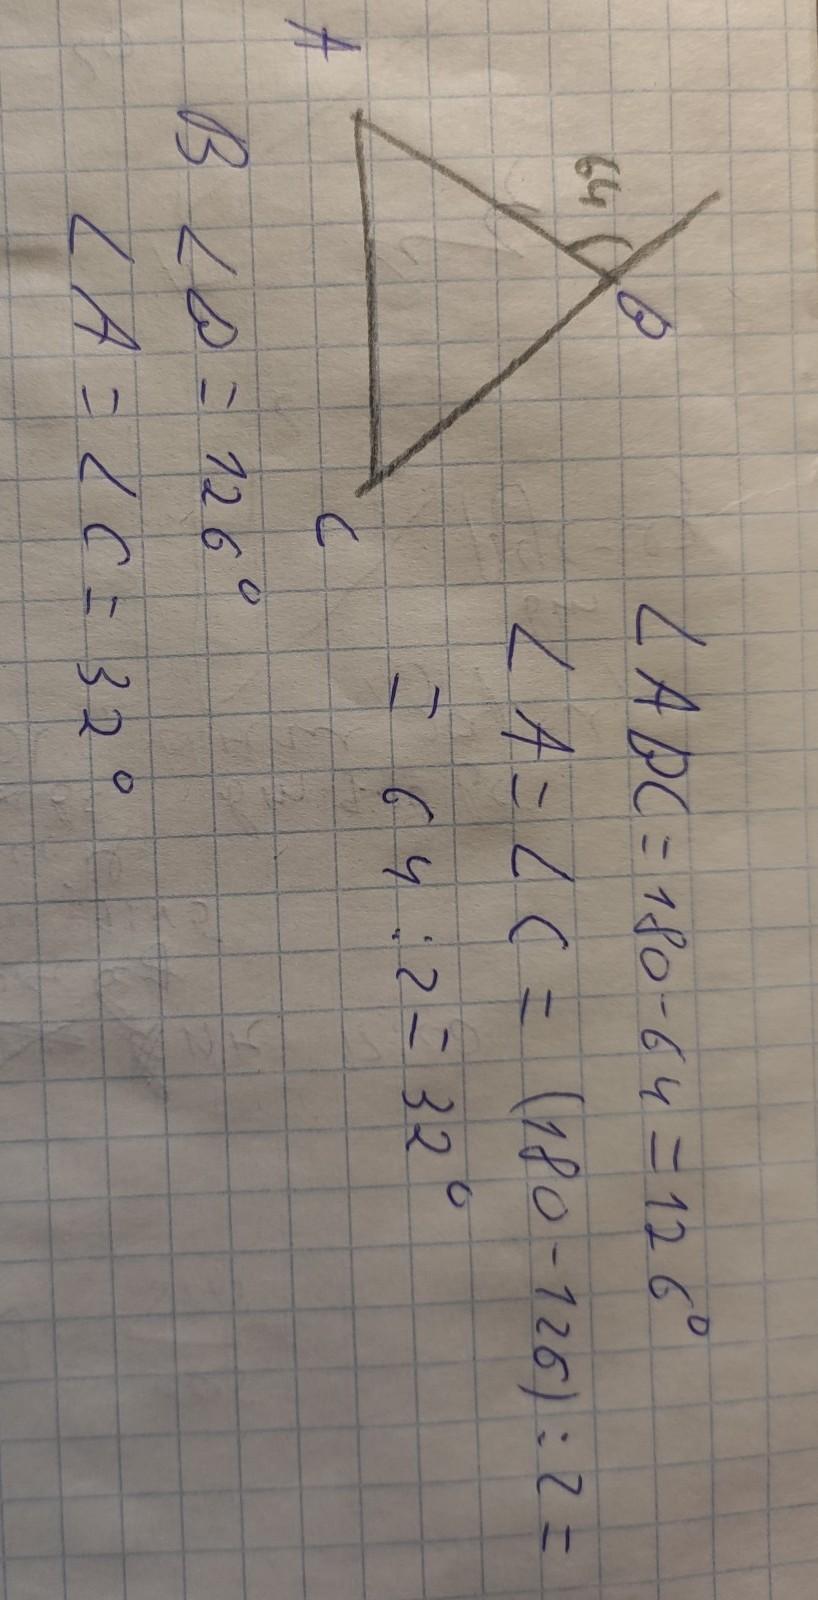 D
64
∠ADC=180-64=126°
∠A=∠C=(180-126):2=
=64:2=32°
A
C
B ∠D=126°
∠A=∠C=32°